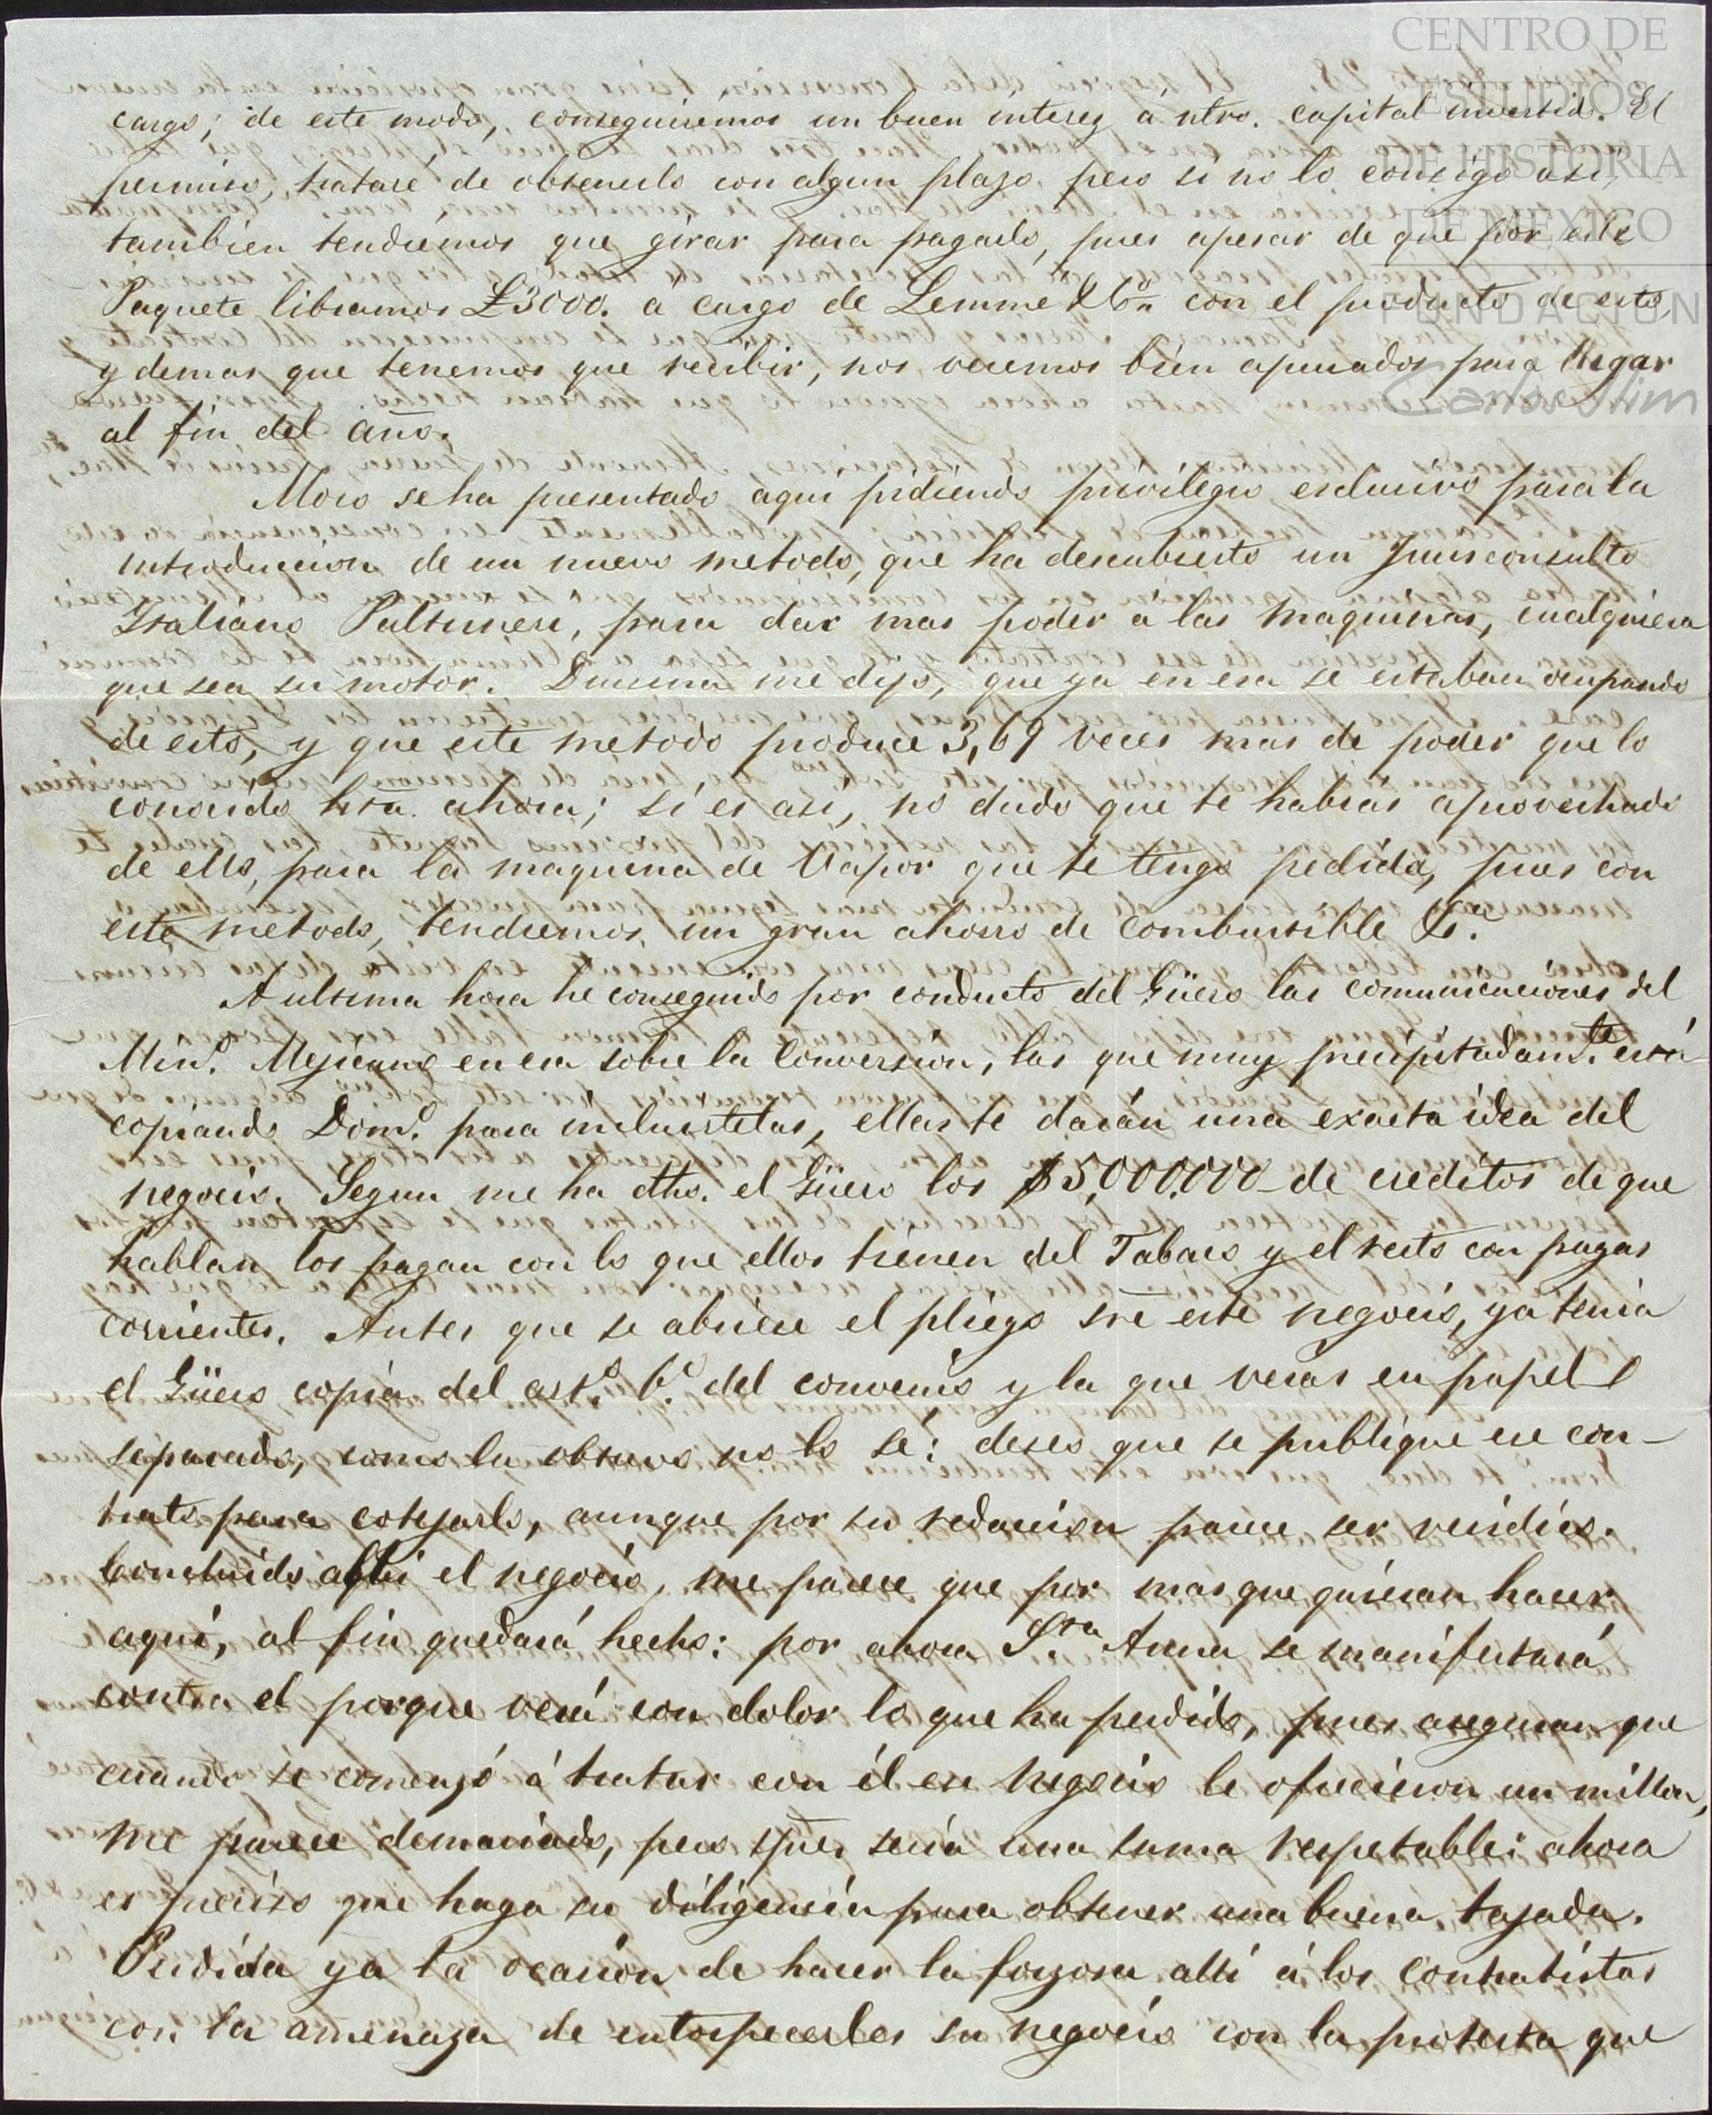 CENTRO DE
ESTUDIOS
DE HISTORIA
DE MÉXICO
FUNDACIÓN
Carlos Slim
cargo; de este modo, conseguiremos un buen interes a ntro. capital invertido. El
permiso, tratare de obtenerlo con algun plazo pero si no lo consigo asi,
tambien tendremos que girar para pagarlo, pues apesar de que por este
Paquete libramos £3000. a cargo de Lemme & Cª con el producto de esto,
y demas que tenemos que recibir, nos veremos bien apurados para llegar
al fin del año.
Moro se ha presentado aqui pidiendo privilegio esclusivo para la
introduccion de un nuevo metodo, que ha descubierto un Jurisconsulto
Italiano Paltrineri, para dar mas poder á las maquinas, cualquiera
que sea su motor. Drusina me dijo, que ya en esa se estaban ocupando
de esto, y que este metodo produce 3,69 veces mas de poder que lo
conocido hta. ahora; si es asi, no dudo que te habras aprovechado
de ello, para la maquina de Vapor que te tengo pedida, pues con
este metodo, tendremos un gran ahorro de combustible &ª.
A ultima hora he conseguido por conducto del Güero las comunicaciones del
Minº. Mejicano en esa sobre la Conversion, las que muy precipitadamte. está
copiando Domº. para incluirtelas, ellas te darán una exacta idea del
negocio. Segun me ha dho. el Güero los $5,000.000 de creditos de que
hablan los pagan con lo que ellos tienen del Tabaco y el resto con pagas
corrientes. Antes que se abriese el pliego sre este negocio, ya tenia
el Güero copia del artº. 6º. del convenio y la que veras en papel
separado, como la obtuvo no lo sé: deseo que se publique ese con-
trato para cotejarlo, aunque por su redaccion parece ser veridico.
Concluido alli el negocio, me parece que por mas que quieran hacer
aquí, al fin quedará hecho: por ahora Sta. Anna se manifestará
contra el porque verá con dolor lo que ha perdido, pues aseguran que
cuando se comenzó á tratar con él ese negocio le ofrecieron un millon,
me parece demaciado, pero spre. seria una suma respetable: ahora
es preciso que haga su diligencia para obtener una buena tajada.
Perdida ya la ocasion de hacer la forzosa alli á los contratistas
con la amenaza de entorpecerles su negocio con la protesta que